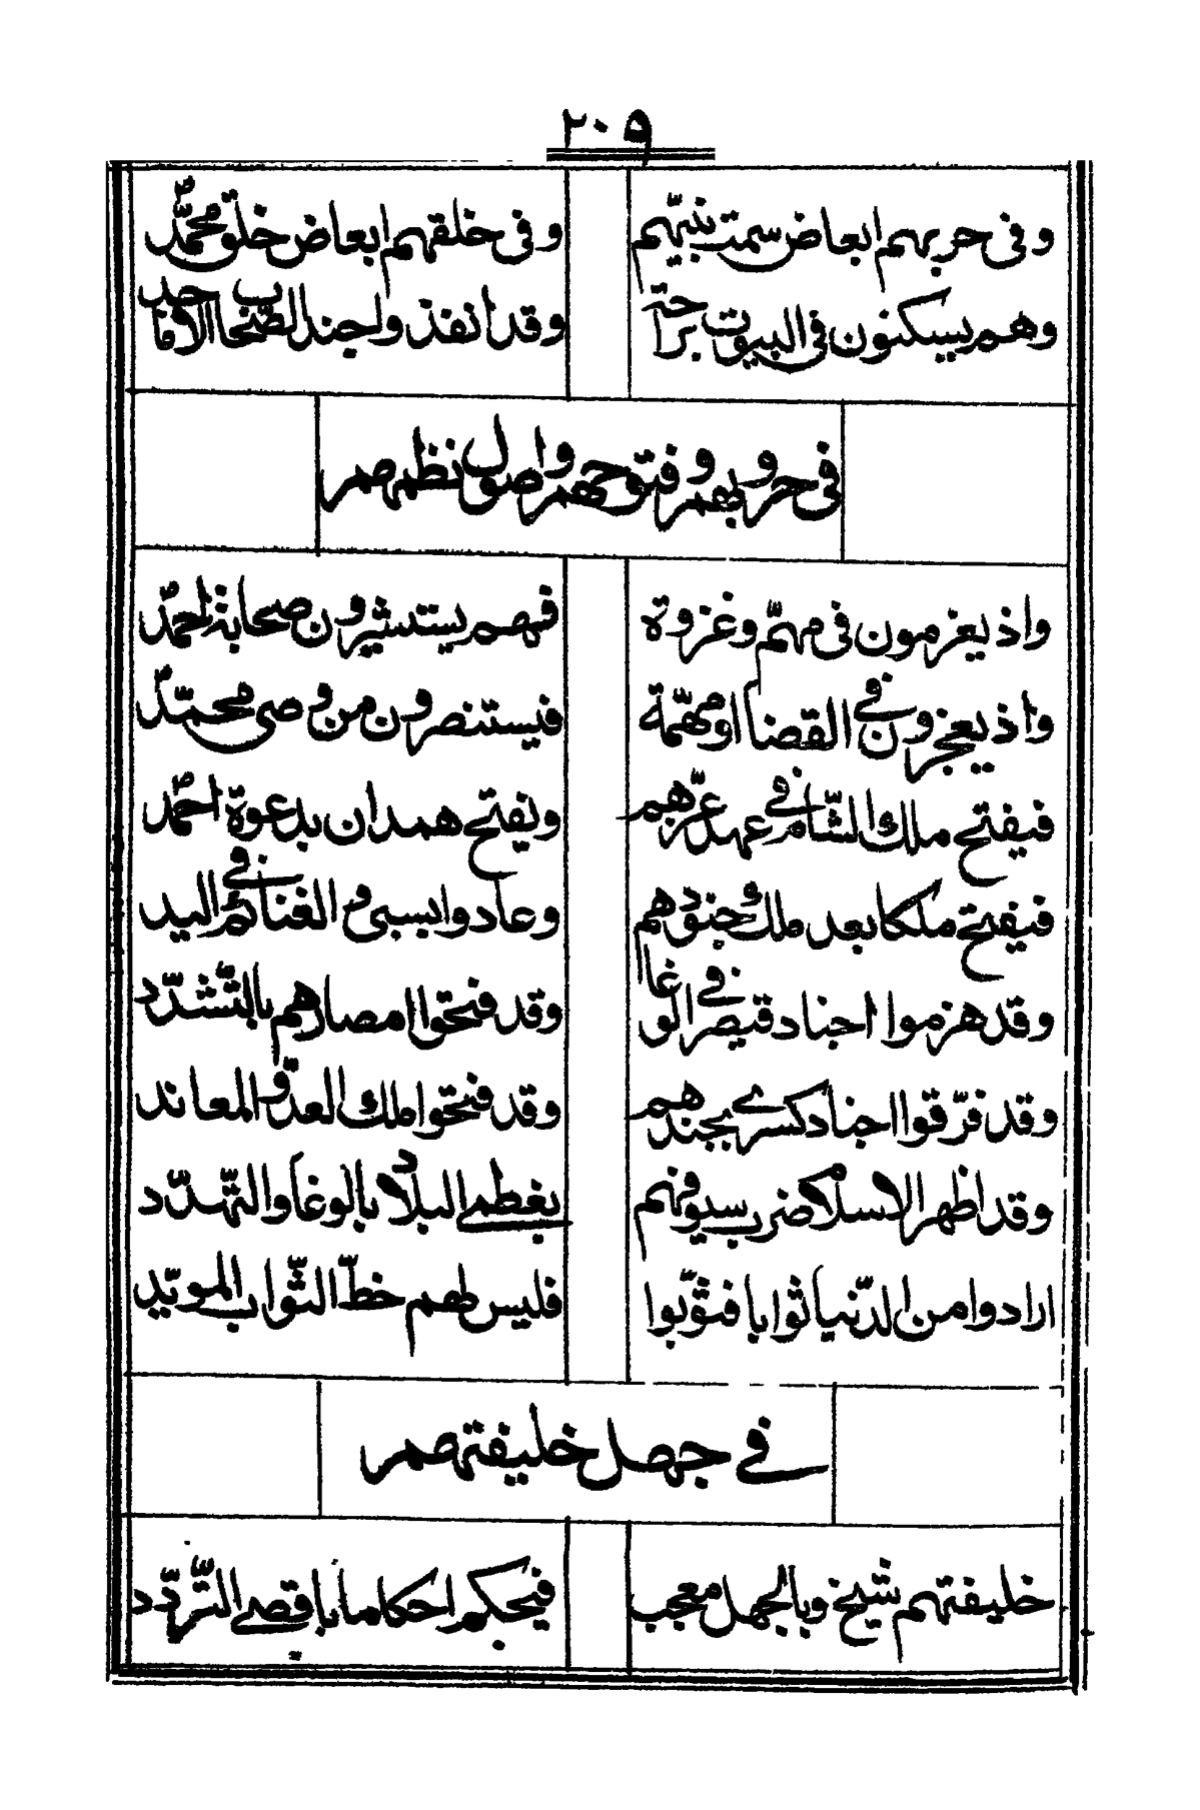 ٢٠٩
وفى حربهم ابعاض سمت نبيّهم وفى خلقهم ابعاض خلق محمّد
وهم يسكنون فى البيوت براحة وقد انفذوا جند الصّحاب الافاحد
فى حروبهم وفتوحهم واصول نظمهم
واذ يعزمون فى مهمّ وغزوة فهم يستشيرون صحابة احمد
واذ يعجزون فى القضا او مهمّة فيستنصرون من وصى محمّد
فيفتح ملك الشّام فى عهد عزّهم ويفتح همدان بدعوة احمد
فيفتح ملكا بعد ملك جنودهم وعادوا بسبى والغنائم فى اليد
وقد هزموا اجناد قيصر فى الوغا وقد فتحوا امصارهم بالتّشدّد
وقد فرّقوا اجناد كسرى بجندهم وقد فتحوا ملك العدّو المعاند
وقد اظهر الاسلام ضرب سيوفهم بغطمى البلاد بالوغا والتّهدّد
ارادوا من الدّنيا ثوابا فثوّبوا فليس لهم حظّ الثّواب المويّد
فى جهل خليفتهم
خليفتهم شيخ وبالجهل معجب فيحكم احكاما باقصى التّردّد